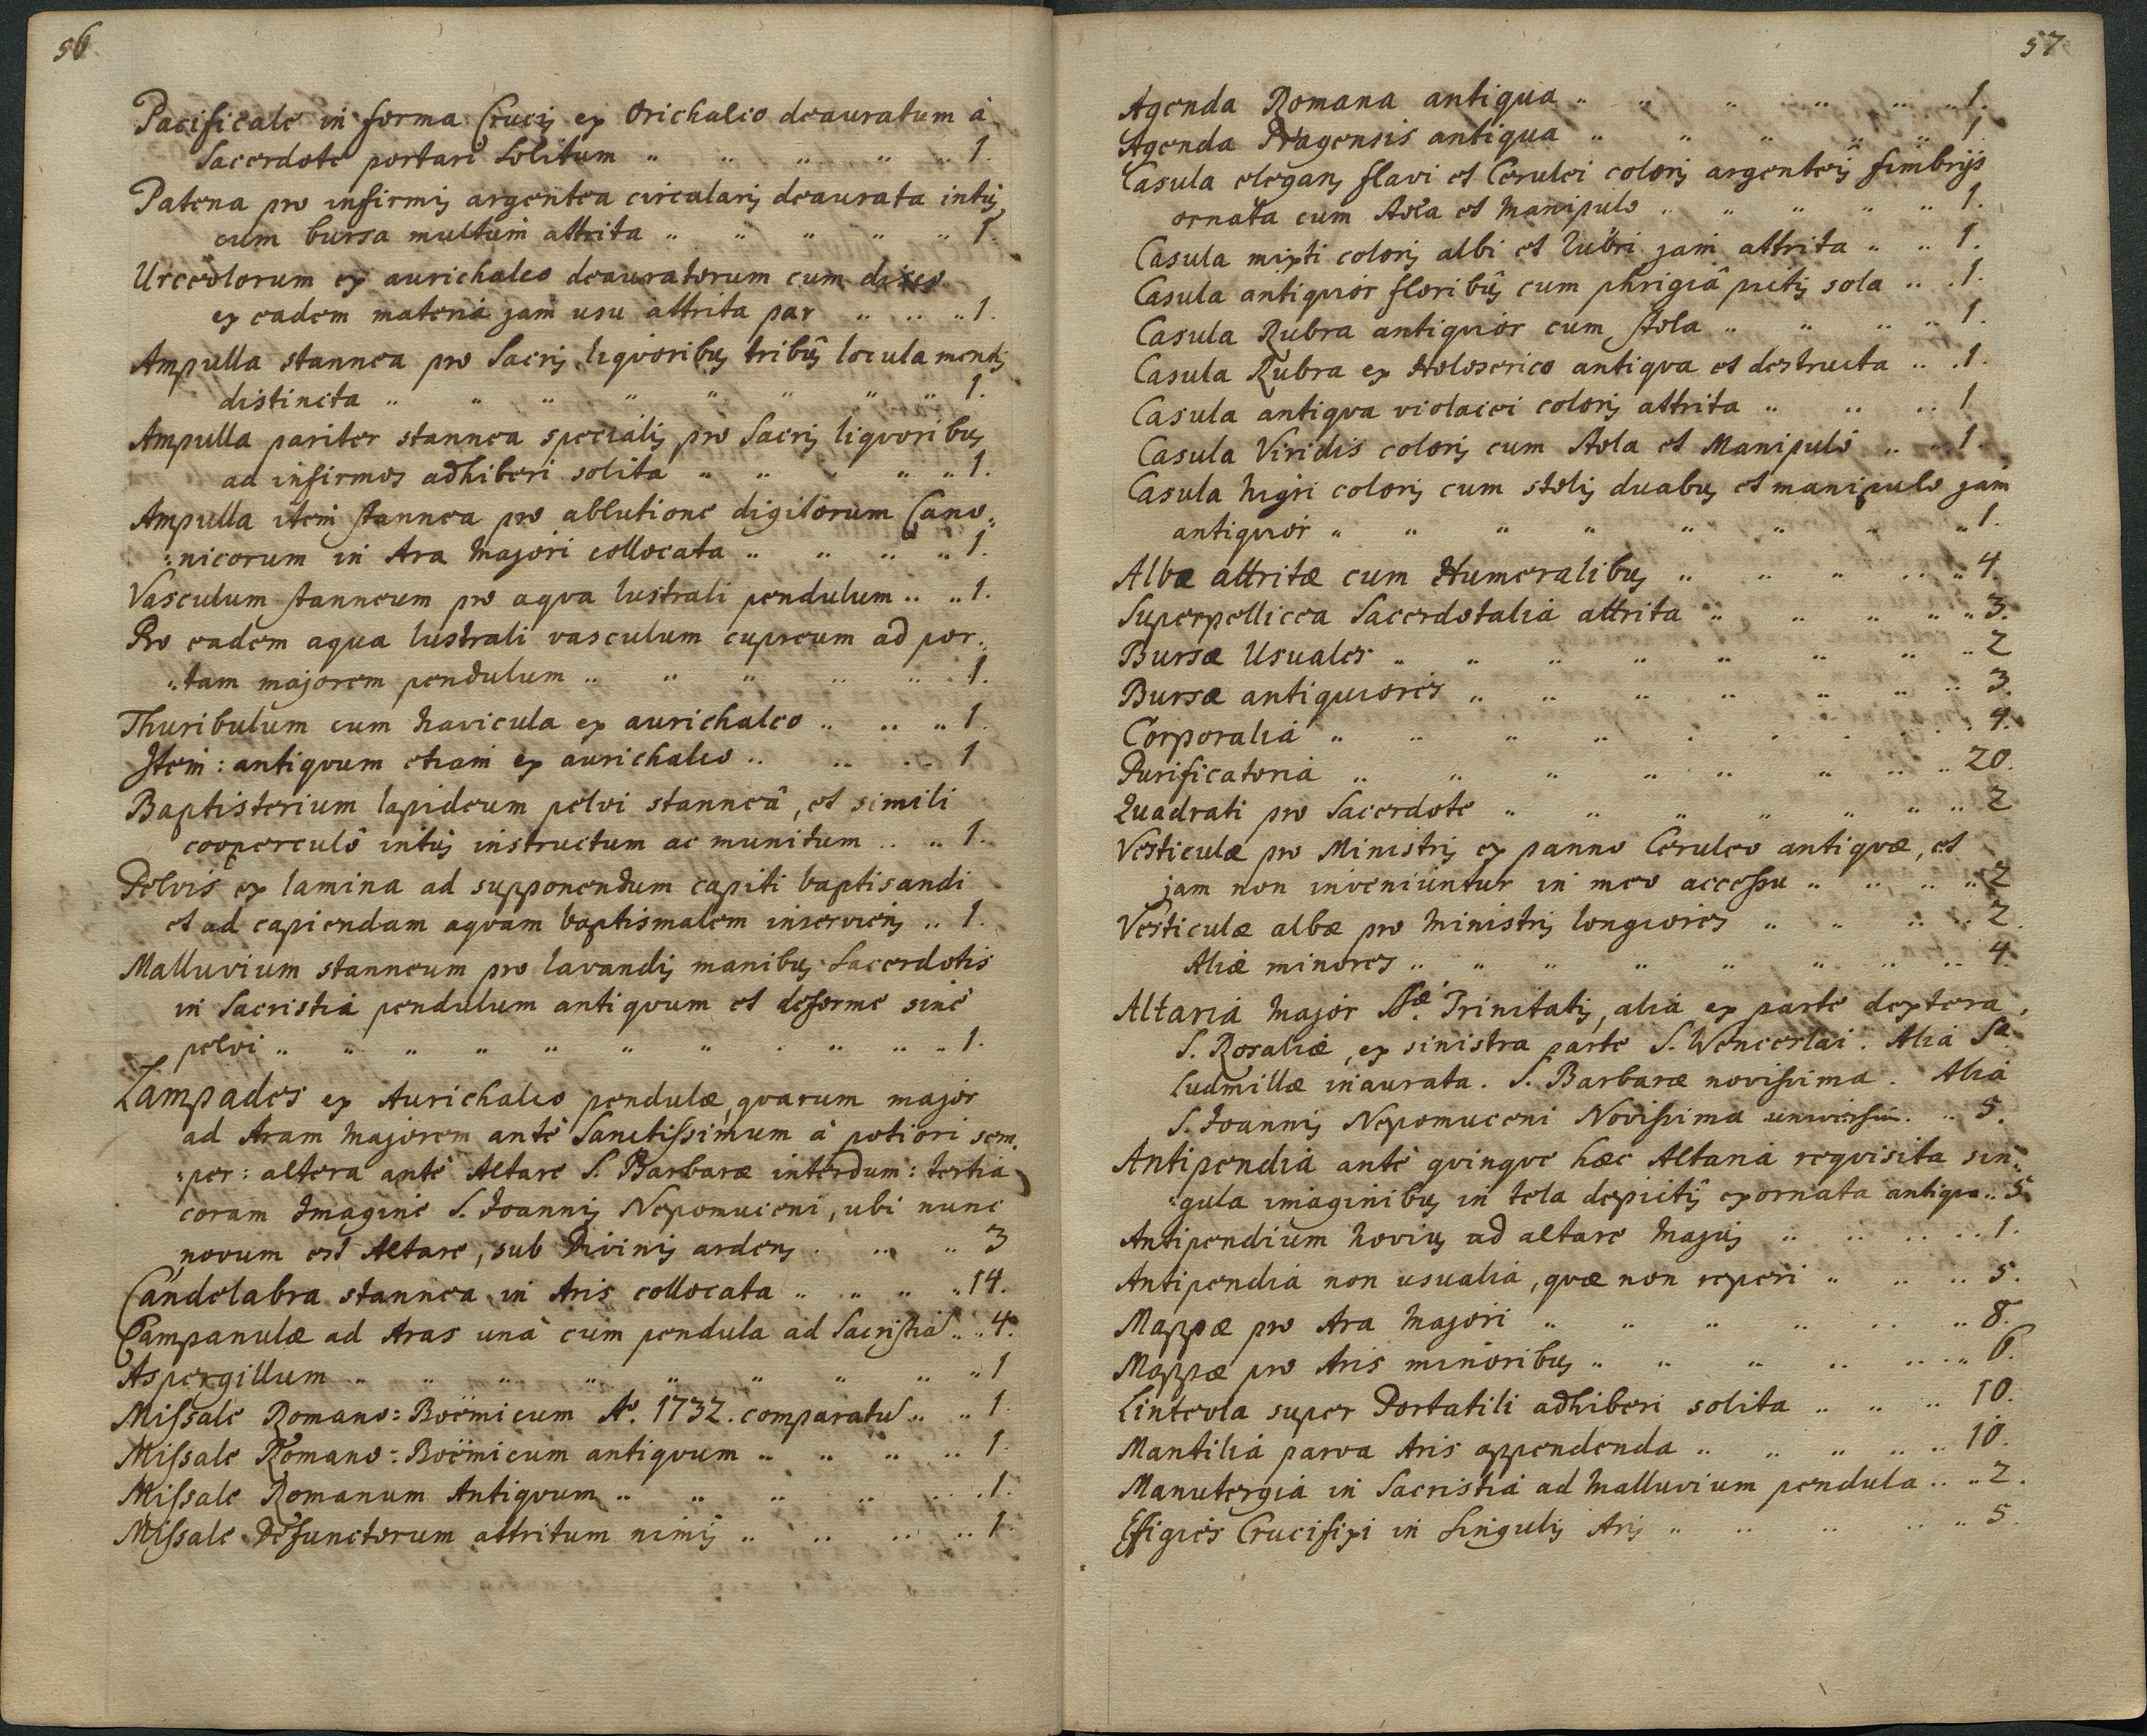 56
Pacificale in forma Crucis ex Orichalco deauratum à
Sacerdote portari Solitum .. .. .. .. .. 1.
Patena pro infirmis argentea circularis deaurata intus
cum bursa multum attrita .. .. .. .. .. 1.
Urceolorum ex aurichalco deauratorum cum disco
ex eadem materia jam usu attrita par .. .. .. 1.
Ampulla stannea pro Sacris liquoribus tribûs locula mentis
distincta .. .. .. .. .. .. .. .. 1.
Ampulla pariter stannea specialis pro Sacris liqvoribus
ad infirmos adhiberi solita .. .. .. .. .. 1.
Ampulla item stannea pro ablutione digitorum Cano„
„nicorum in Ara Majori collocata .. .. .. .. 1.
Vasculum stanneum pro aqva lustrali pendulum .. .. 1.
Pro eadem aqua lustrali vasculum cupreum ad por„
„tam majorem pendulum .. .. .. .. .. . 1.
Thuribulum cum Navicula ex aurichalco .. .. .. 1.
Item: antiqvum etiam ex aurichalco .. .. .. 1
Baptisterium lapideum pelvi stanneâ, et simili
cooperculô intus instructum ac munitum .. .. 1.
Pelvis ex lamina ad supponendum capiti baptisandi
et ad capiendam aqvam baptismalem inserviens .. 1.
Malluvium stanneum pro lavandis manibus Sacerdotis
in Sacristia pendulum antiqvum et deforme sinè
pelvi .. .. .. .. .. .. .. . .. .. .. 1.
Lampades ex Aurichalco pendulæ, qvarum major
ad Aram Majorem antè Sanctissimum à potiori sem„
„per: altera antè Altare S. Barbaræ interdum: tertia
coram Imagine S. Joannis Nepomuceni, ubi nunc
novum est Altare, sub Divinis ardens . .. .. 3
Candelabra stannea in Aris collocata .. .. .. .. 14.
Campanulæ ad Aras unà cum pendula ad Sacristiã .. .. 4.
Aspergillum .. .. .. .. .. .. .. .. .. 1
Missale Romano=Boëmicum Aº. 1732. comparatũ .. .. 1
Missale Romano=Boëmicum antiqvum .. .. .. .. 1.
Missale Romanum Antiqvum .. .. .. .. .. . 1.
Missale Defunctorum attritum nimis .. .. .. .. 1.
57
Agenda Romana antiqua .. .. .. .. .. .. 1.
Agenda Pragensis antiqua .. .. .. .. .. 1.
Casula elegans flavi et Cerulei coloris argenteis fimbrijs
ornata cum Stola et Manipulo .. .. .. .. .. 1.
Casula mixti coloris albi et Rubri jam attrita .. .. 1.
Casula antiquior floribûs cum phrigiâ pictis sola .. . 1.
Casula Rubra antiquior cum Stola .. .. .. .. 1.
Casula Rubra ex Holoserico antiqva et destructa .. . 1.
Casula antiqva violacei coloris attrita .. .. .. 1
Casula Viridis coloris cum Stola et Manipulô .. .. 1.
Casula Nigri coloris cum stolis duabus et manipulo jam
antiqvior .. .. .. .. .. .. .. .. 1.
Albæ attritæ cum Humeralibus .. .. .. .. .. 4.
Superpellicea Sacerdotalia attrita .. .. .. .. .. 3.
Bursæ Usuales .. .. .. .. .. .. .. .. 2
Bursæ antiquiores .. .. .. .. .. .. .. 3.
Corporalia .. .. .. .. . . . . . 4.
Purificatoria .. .. .. .. .. .. .. .. 20.
Quadrati pro Sacerdote .. .. .. .. .. .. 2
Vesticulæ pro Ministris ex panno Ceruleo antiqvæ, et
jam non inveniuntur in meo accessu .. .. .. .. 2
Vesticulæ albæ pro Ministris longiores .. .. .. .. 2.
Aliæ minores .. .. .. .. .. .. .. .. 4.
Altaria Major SSæ. Trinitatis, alia ex parte dextera
S. Rosaliæ, ex sinistra parte S. Wenceslai. Alia Sa
Ludmillæ inaurata. S. Barbaræ novissima. Alia
S. Joannis Nepomuceni Novissima .. 5.
Antipendia antè qvinqve hæc Altaria reqvisita sin„
„gula imaginibus in tela depictis exornata antiqua .. 5.
Antipendium Novius ad altare Majus .. .. .. .. 1.
Antipendia non usualia, qvæ non reperi .. .. .. 5.
Mappæ pro Ara Majori .. .. .. .. .. .. 8.
Mappæ pro Aris minoribus .. .. .. .. .. .. 6.
Linteola super Portatili adhiberi solita .. .. .. 10.
Mantilia parva Aris appendenda .. .. .. .. .. 10.
Manutergia in Sacristia ad Malluvium pendula .. .. 2.
Effigies Crucifixi in Singulis Aris .. .. .. .. .. 5.